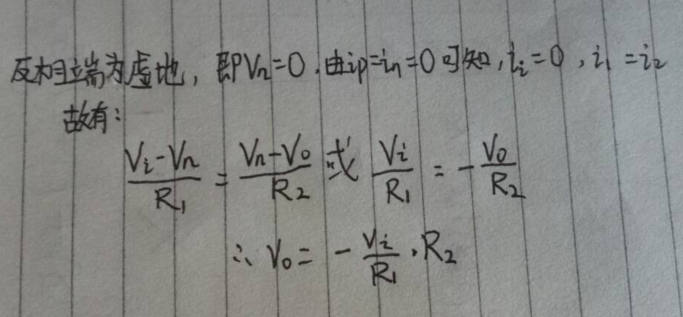 反相端为虚地，即Vn=0.由ip=in=0可知,ii=0,i1=i2
故有：
(Vi-Vn)/R1 = (Vn-Vo)/R2 或 Vi/R1 = -Vo/R2
∴ Vo = -Vi/R1·R2